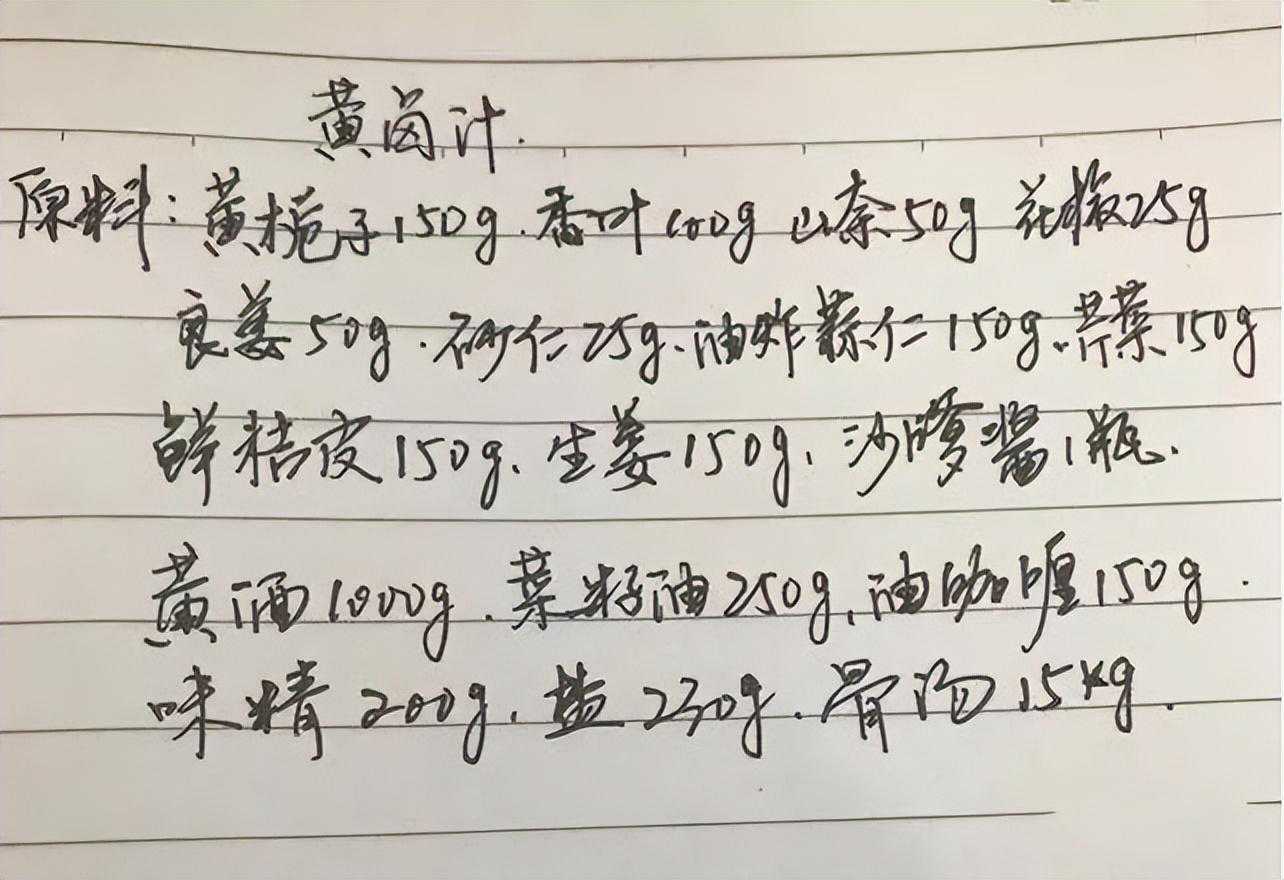 黄卤汁.
原料:黄栀子150g.香叶100g 山奈50g 花椒25g
良姜50g.砂仁25g、油炸蒜仁150g.芹菜150g
鲜桔皮150g、生姜150g、沙嗲酱1瓶.
黄酒1000g.菜籽油250g,油咖喱150g.
味精200g.盐230g.骨汤15kg.